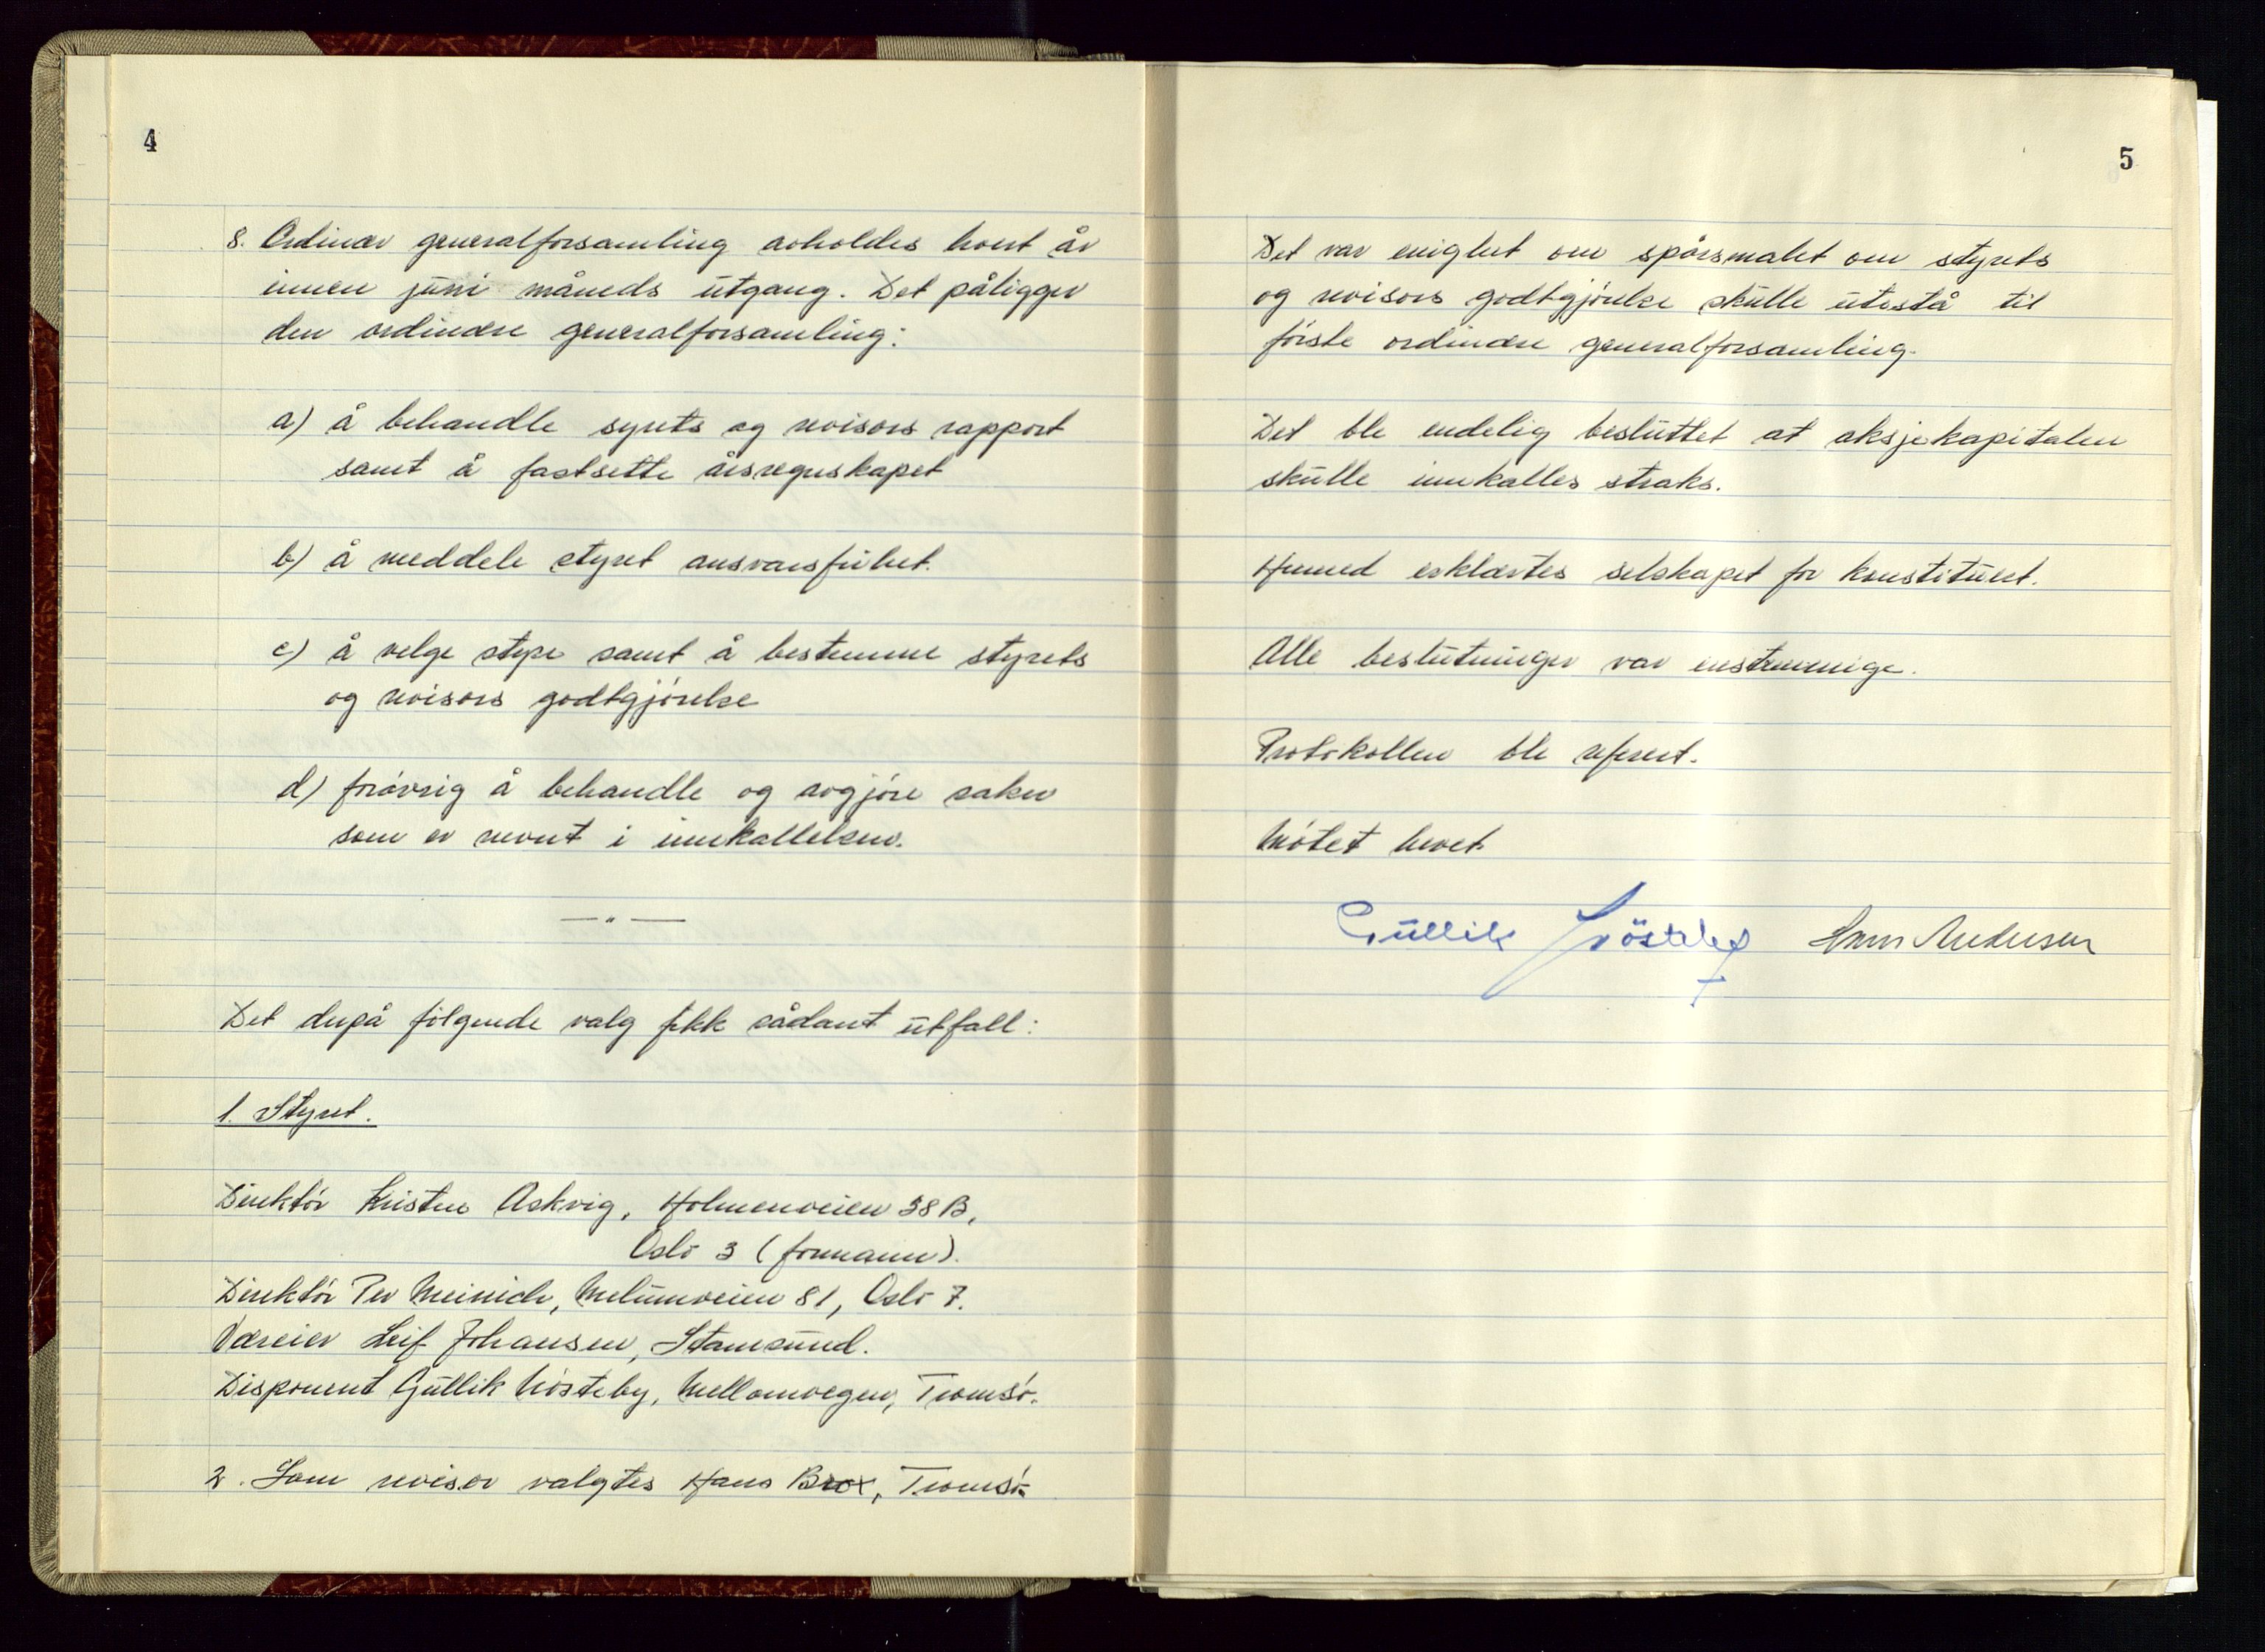 4
8. Ordinær generalforsamling avholdes hvert år
innen juni måneds utgang. Det påligger
den ordinære generalforsamling:
a) å behandle syrets og revisors rapport
samt å fastsette årsregnskapet
b) å meddele styret ansvarsfrihet.
c) å velge styre samt å bestemme styrets
og revisors godtgjørelse
d) forøvrig å behandle og avgjøre saker
som er nevnt i innkallelsen.
— " —
Det derpå følgende valg fikk sådant utfall:
1. Styret.
Direktør Kristen Askvig, Holmenveien 38 B,
Oslo 3 (formann).
Direktør Per Meinich, Melumveien 81, Oslo 7.
Væreier Leif Johansen, Stamsund.
Disponent Gullik Nøsteby, Mellomvegen, Tromsø.
2. Som revisor valgtes Hans Brox, Tromsø
5
Det var enighet om spørsmålet om styrets
og revisors godtgjørelse skulle utestå til
første ordinære generalforsamling.
Det ble endelig besluttet at aksjekapitalen
skulle innkalles straks.
Hermed erklærtes selskapet for konstituert.
Alle beslutninger var enstemmige.
Protokollen ble referert.
Møtet hevet.
Gullik Hans Andersen